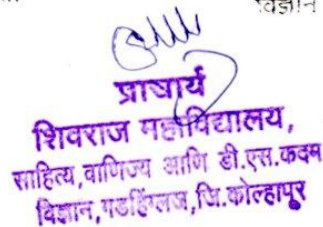 विज्ञान
प्राचार्य
शिवराज महाविद्यालय,
साहित्य,वाणिज्य आणि डी.एस.कदम
विज्ञान,गडहिंग्लज,जि.कोल्हापूर